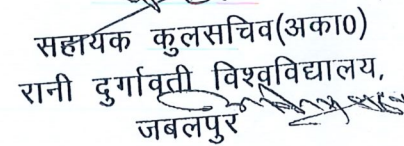 सहायक कुलसचिव(अका0)
रानी दुर्गावती विश्वविद्यालय,
जबलपुर